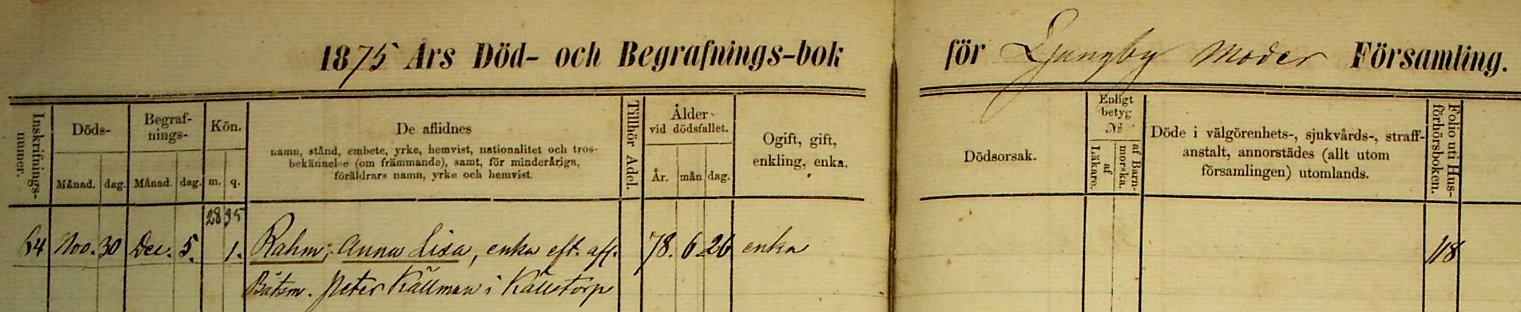 1875 Års Död- och Begrafnings-bok för Ljungby Moder Församling.
Inskrifnings-
numer.
Döds-
Månad. dag.
Begraf-
nings-
Månad. dag.
Kön.
m. q.
De aflidnes
namn, stånd, embete, yrke, hemvist, nationalitet och tros-
bekännelse (om främmande), samt, för minderåriga,
föräldrars namn, yrke och hemvist.
Tillhör Adel.
Ålder
vid dödsfallet.
År. mån dag.
Ogift, gift,
enkling, enka.
Dödsorsak.
Enligt
betyg
No
af
Läkare.
af Barn-
morska.
Döde i välgörenhets-, sjukvårds-, straff-
anstalt, annorstädes (allt utom
församlingen) utomlands.
Folio uti Hus-
förhörsboken.
28 35
64 Nov. 30 Dec. 5. 1. Rahm, Anna Lisa, enka eft. afl. 78. 6. 26 enka 118
Båtsm. Peter Källman i Källstorp